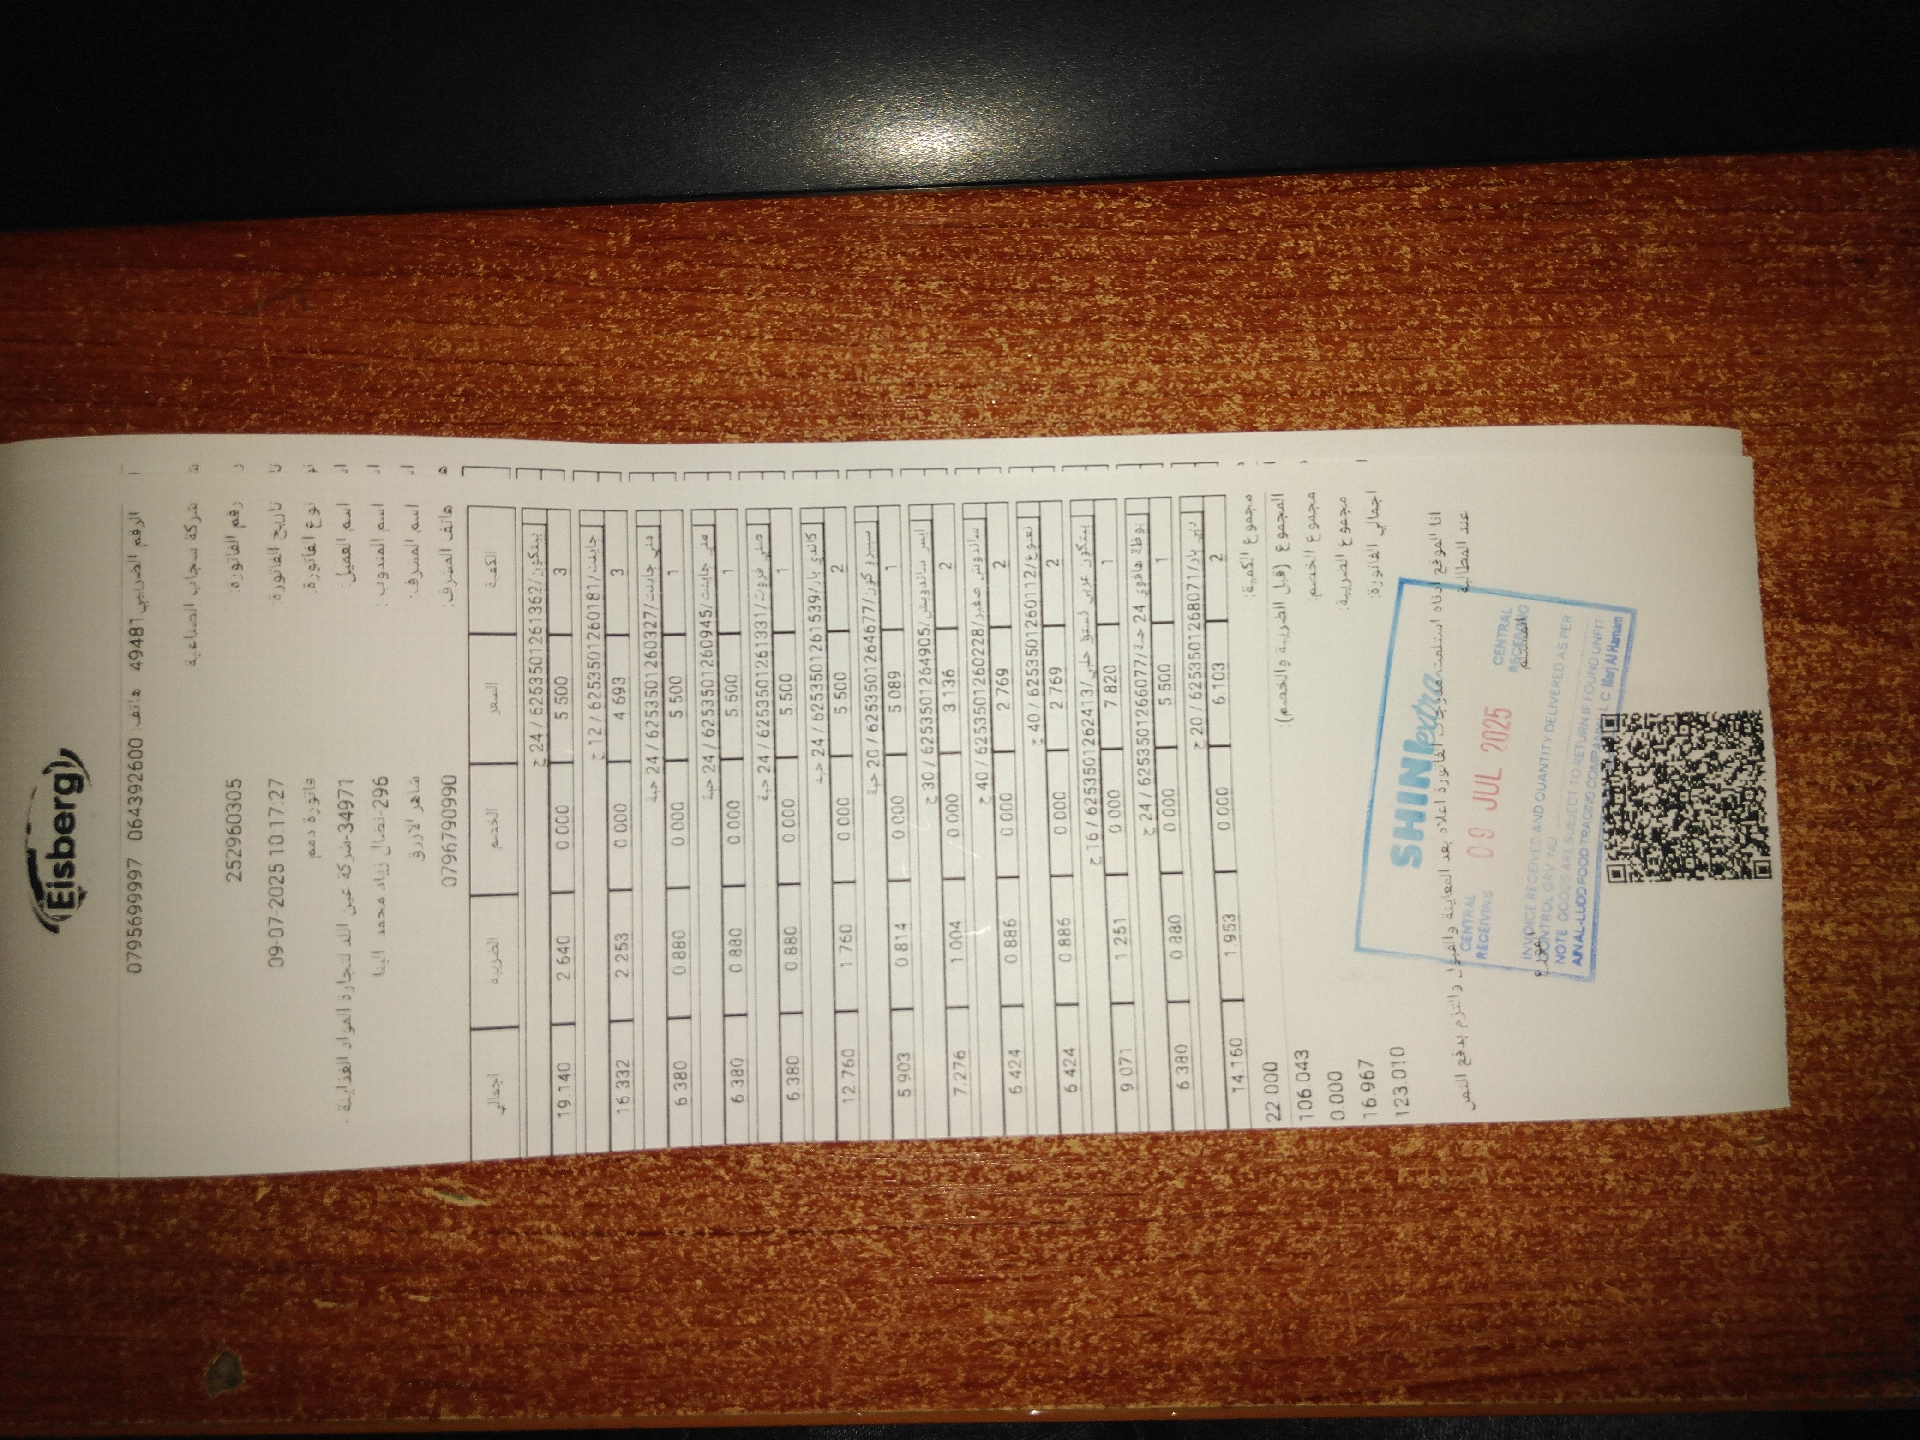 Eisberg
الرقم الضريبي 49481 هاتف 064392600 0795699997
شركة سجاب الصناعية
رقم الفاتورة: 252960305
تاريخ الفاتورة: 09-07-2025 10:17:27
نوع الفاتورة: فاتورة ذمم
اسم العميل: 34971-شركة عين اللد لتجارة المواد الغذائية -
اسم المندوب: 296-نضال زياد محمد البنا
اسم المشرف: شاهر الازرق
هاتف المشرف: 0796790990
الكمية السعر الخصم الضريبة اجمالي
بيتكون/6253501261362 / 24 ح
3 5.500 0.000 2.640 19.140
جاينت/6253501260181 / 12 ح
3 4.693 0.000 2.253 16.332
مني جاينت/6253501260327 / 24 حبة
1 5.500 0.000 0.880 6.380
مني جاينت/6253501260945 / 24 حبة
1 5.500 0.000 0.880 6.380
مني فروت/6253501261331 / 24 حبة
1 5.500 0.000 0.880 6.380
كاندي بار/6253501261539 / 24 حبة
2 5.500 0.000 1.760 12.760
سيدرو كون/6253501264677 / 20 حبة
1 5.089 0.000 0.814 5.903
ايس ساندويش/6253501264905 / 30 ح
2 3.136 0.000 1.004 7.276
ساندوش صغير/6253501260228 / 40 ح
2 2.769 0.000 0.886 6.424
نعنوع/6253501260112 / 40 ح
2 2.769 0.000 0.886 6.424
بيتكون عربي فستق حلبي/6253501262413 / 16 ح
1 7.820 0.000 1.251 9.071
بوظة هافوي 24 حبة/6253501266077 / 24 ح
1 5.500 0.000 0.880 6.380
دبي بار/6253501268071 / 20 ح
2 6.103 0.000 1.953 14.160
مجموع الكمية: 22.000
المجموع (قبل الضريبة والخصم): 106.043
مجموع الخصم: 0.000
مجموع الضريبة: 16.967
اجمالي الفاتورة: 123.010
انا الموقع ادناه استلمت الفاتورة اعلاه بعد المعاينة والقبول والتزم بدفع الثمن
عند المطالبة
SHINI extra
CENTRAL RECEIVING
09 JUL 2025
CENTRAL RECEIVING
المستلم
INVOICE RECEIVED AND QUANTITY DELIVERED AS PER
CONTROL GRV NO
NOTE GOODS ARE SUBJECT TO RETURN IF FOUND UNFIT
AIN AL-LUD FOOD TRADING COMPANY Marj Al Hamam